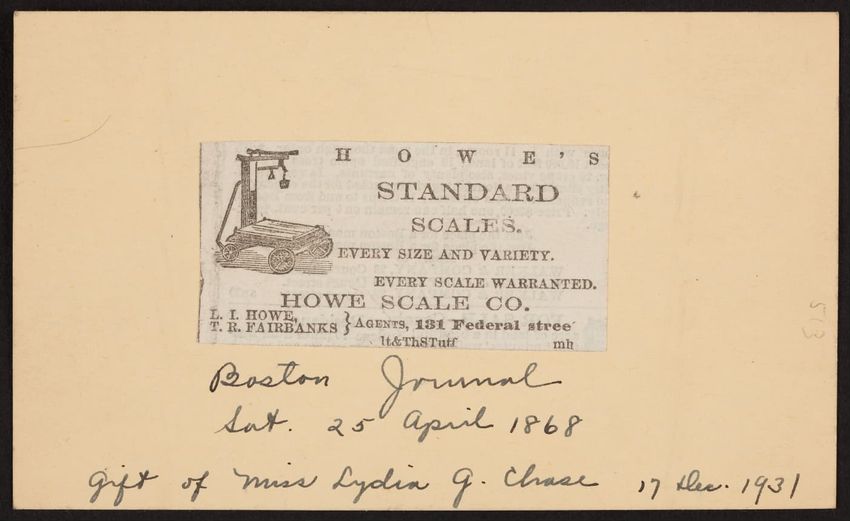 HOWE'S
STANDARD
SCALES.
EVERY SIZE AND VARIETY.
EVERY SCALE WARRANTED.
HOWE SCALE CO.
L. I. HOWE,
T. R. FAIRBANKS } AGENTS, 131 Federal stree
lt&ThSTutf mh
Boston Journal
Sat. 25 April 1868
Gift of Miss Lydia G. Chase 17 Dec. 1931